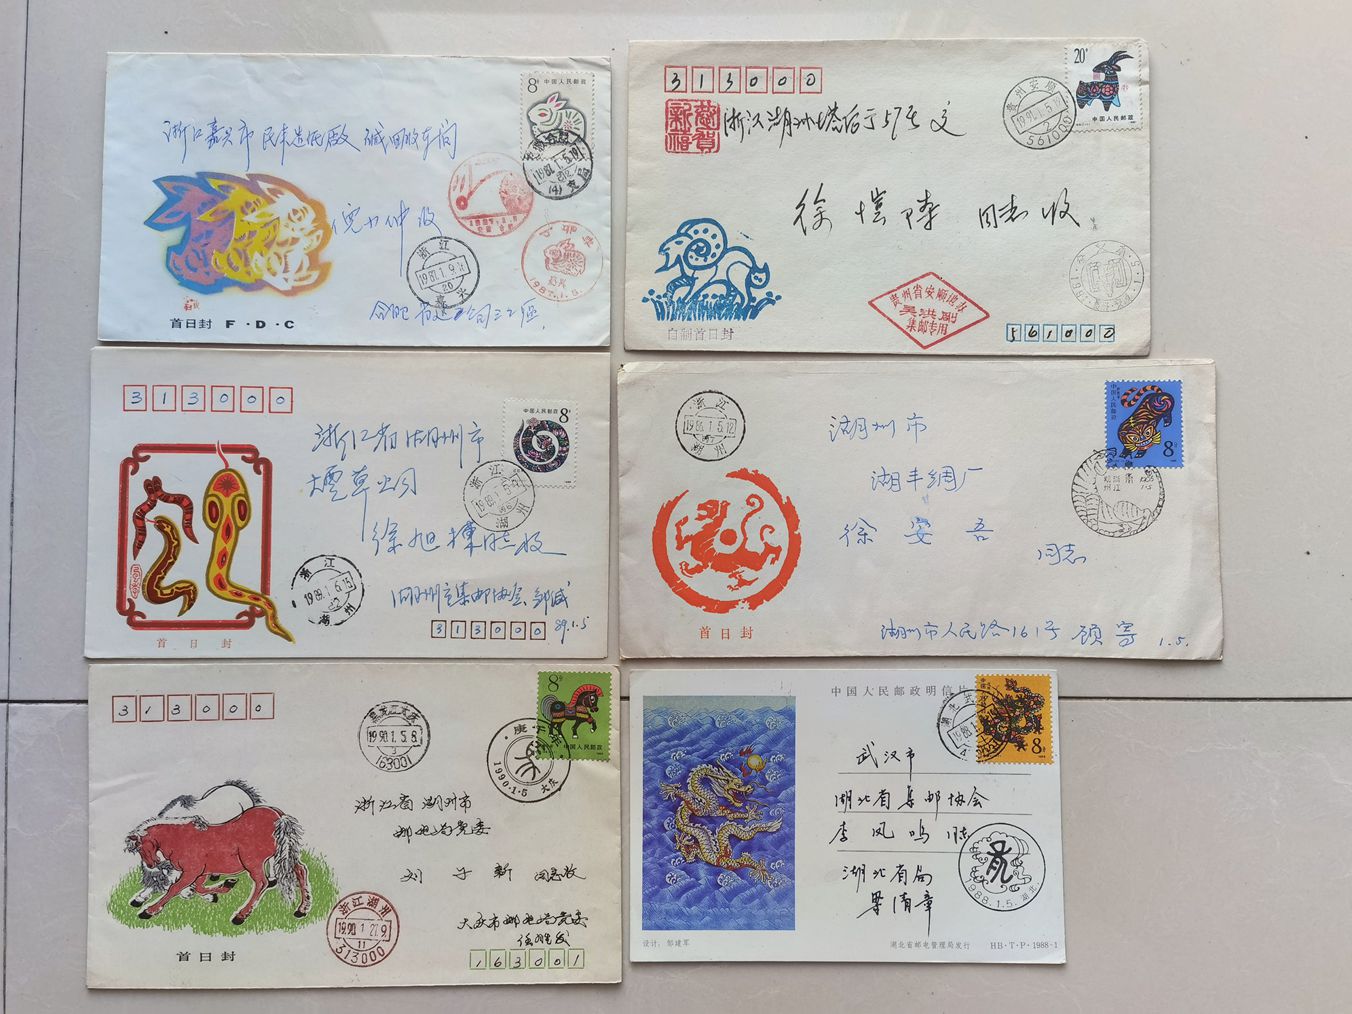 8分 中国人民邮政
浙江嘉兴市民丰造纸厂碱回收车间
收
浙江
1987.1.5
首日封 F·D·C
313000
恭贺新禧
20分
中国人民邮政
贵州安顺
561000
浙江湖州塔后于57号交
徐
同志收
自制首日封
贵州省安顺地办
吴洪刚
集邮专用
561000
313000
中国人民邮政 8分
浙江省湖州市
烟草公司
徐旭
收
浙江
1989.1.5
湖州
浙江
1989.1.6.15
湖州
湖州市集邮协会
313000
89.1.5
首日封
浙江
1986.1.5.12
湖州
中国人民邮政
8分
湖州市
湖丰绸厂
徐安吾
同志
湖州市人民路161号 顾寄 1.5.
首日封
313000
8分
中国人民邮政
黑龙江大庆
1990.1.5.8
3
163001
庚午
1990·1·5 大庆
浙江省湖州市
邮电局党委
刘子新 同志收
大庆市邮电局党委
浙江湖州
1990.1.21.9
11
313000
163001
首日封
中国人民邮政明信片
8分
武汉市
湖北省集邮协会
李凤鸣
湖北省局
1988.1.5.湖北
设计:邹建军
湖北省邮电管理局发行 HB·T·P·1988-1